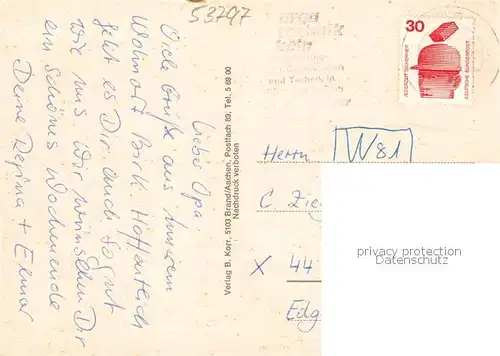 53797
Lieber Opa
Viele Grüße aus unserem
Wohnort Park. Hoffentlich
geht es Dir auch so gut
wie uns. Wir wünschen Dir
ein schönes Wochenende
Deine Regina + Elmar
Verlag B. Korr, 5103 Brand/Aachen, Postfach 89, Tel.: 5 69 00
Nachdruck verboten
und Technik in
30
JEDERZEIT SICHERHEIT
DEUTSCHE BUNDESPOST
W81
Herrn
C. Zie
X 44
Edg
privacy protection
Datenschutz